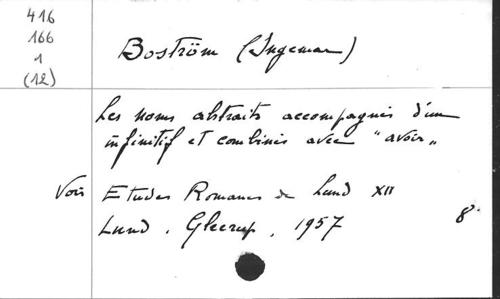 416
166
1
(12)
Boström (Ingemar)
Les noms abstraits accompagnés d'un
infinitif et combinés avec "avoir"
Voir Etudes Romanes de Lund XII
Lund. Gleerup, 1957 8°